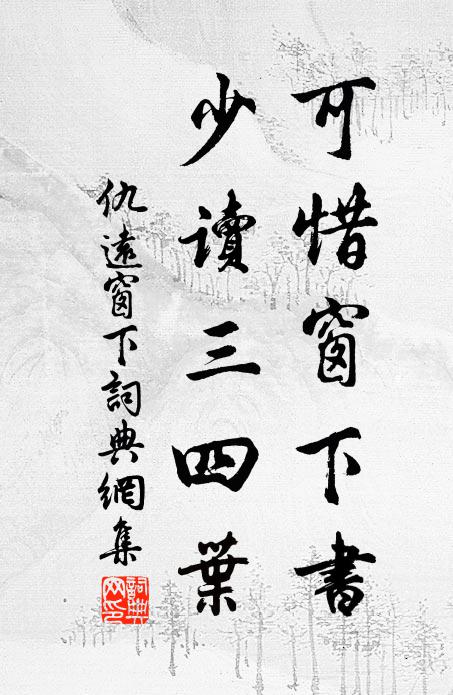 可惜窗下書
少讀三四葉
仇遠窗下詞典網集
詞典網印